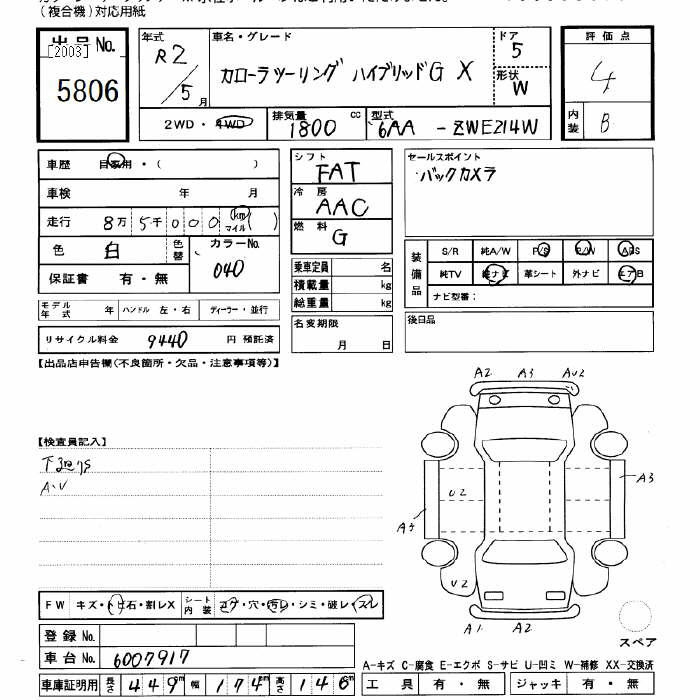 (複合機)対応用紙
出品No.
[2003]
5806
年式
R2/5月
車名・グレード
カローラツーリング ハイブリッドG X
ドア
5
形状
W
評価点
4
内装
B
2WD・4WD
排気量
1800 cc
型式
6AA - ZWE214W
車歴 自家用・( )
車検 年 月
走行 8万 5千 0 0 0 (km マイル)
色 白 色替
カラーNo.
040
保証書 有・無
モデル年式 年 ハンドル 左・右 ディーラー・並行
リサイクル料金 9440 円 預託済
シフト
FAT
冷房
AAC
燃料
G
乗車定員 名
積載量 kg
総重量 kg
名変期限
月 日
セールスポイント
・バックカメラ
装備品
S/R 純A/W P/S P/W ABS
純TV 純ナビ 革シート 外ナビ エアB
ナビ型番:
後日品
【出品店申告欄(不良箇所・欠品・注意事項等)】
【検査員記入】
A・U
A2 A3 AU2
A3
U2
U2
A1 A2
スペア
FW キズ・トビ石・割レX
シート内装 コゲ・穴・汚レ・シミ・破レ・スレ
登録No.
車台No. 6007917
車庫証明用 長さ 449cm 幅 174cm 高さ 146cm
A-キズ C-腐食 E-エクボ S-サビ U-凹ミ W-補修 XX-交換済
工具 有・無 ジャッキ 有・無